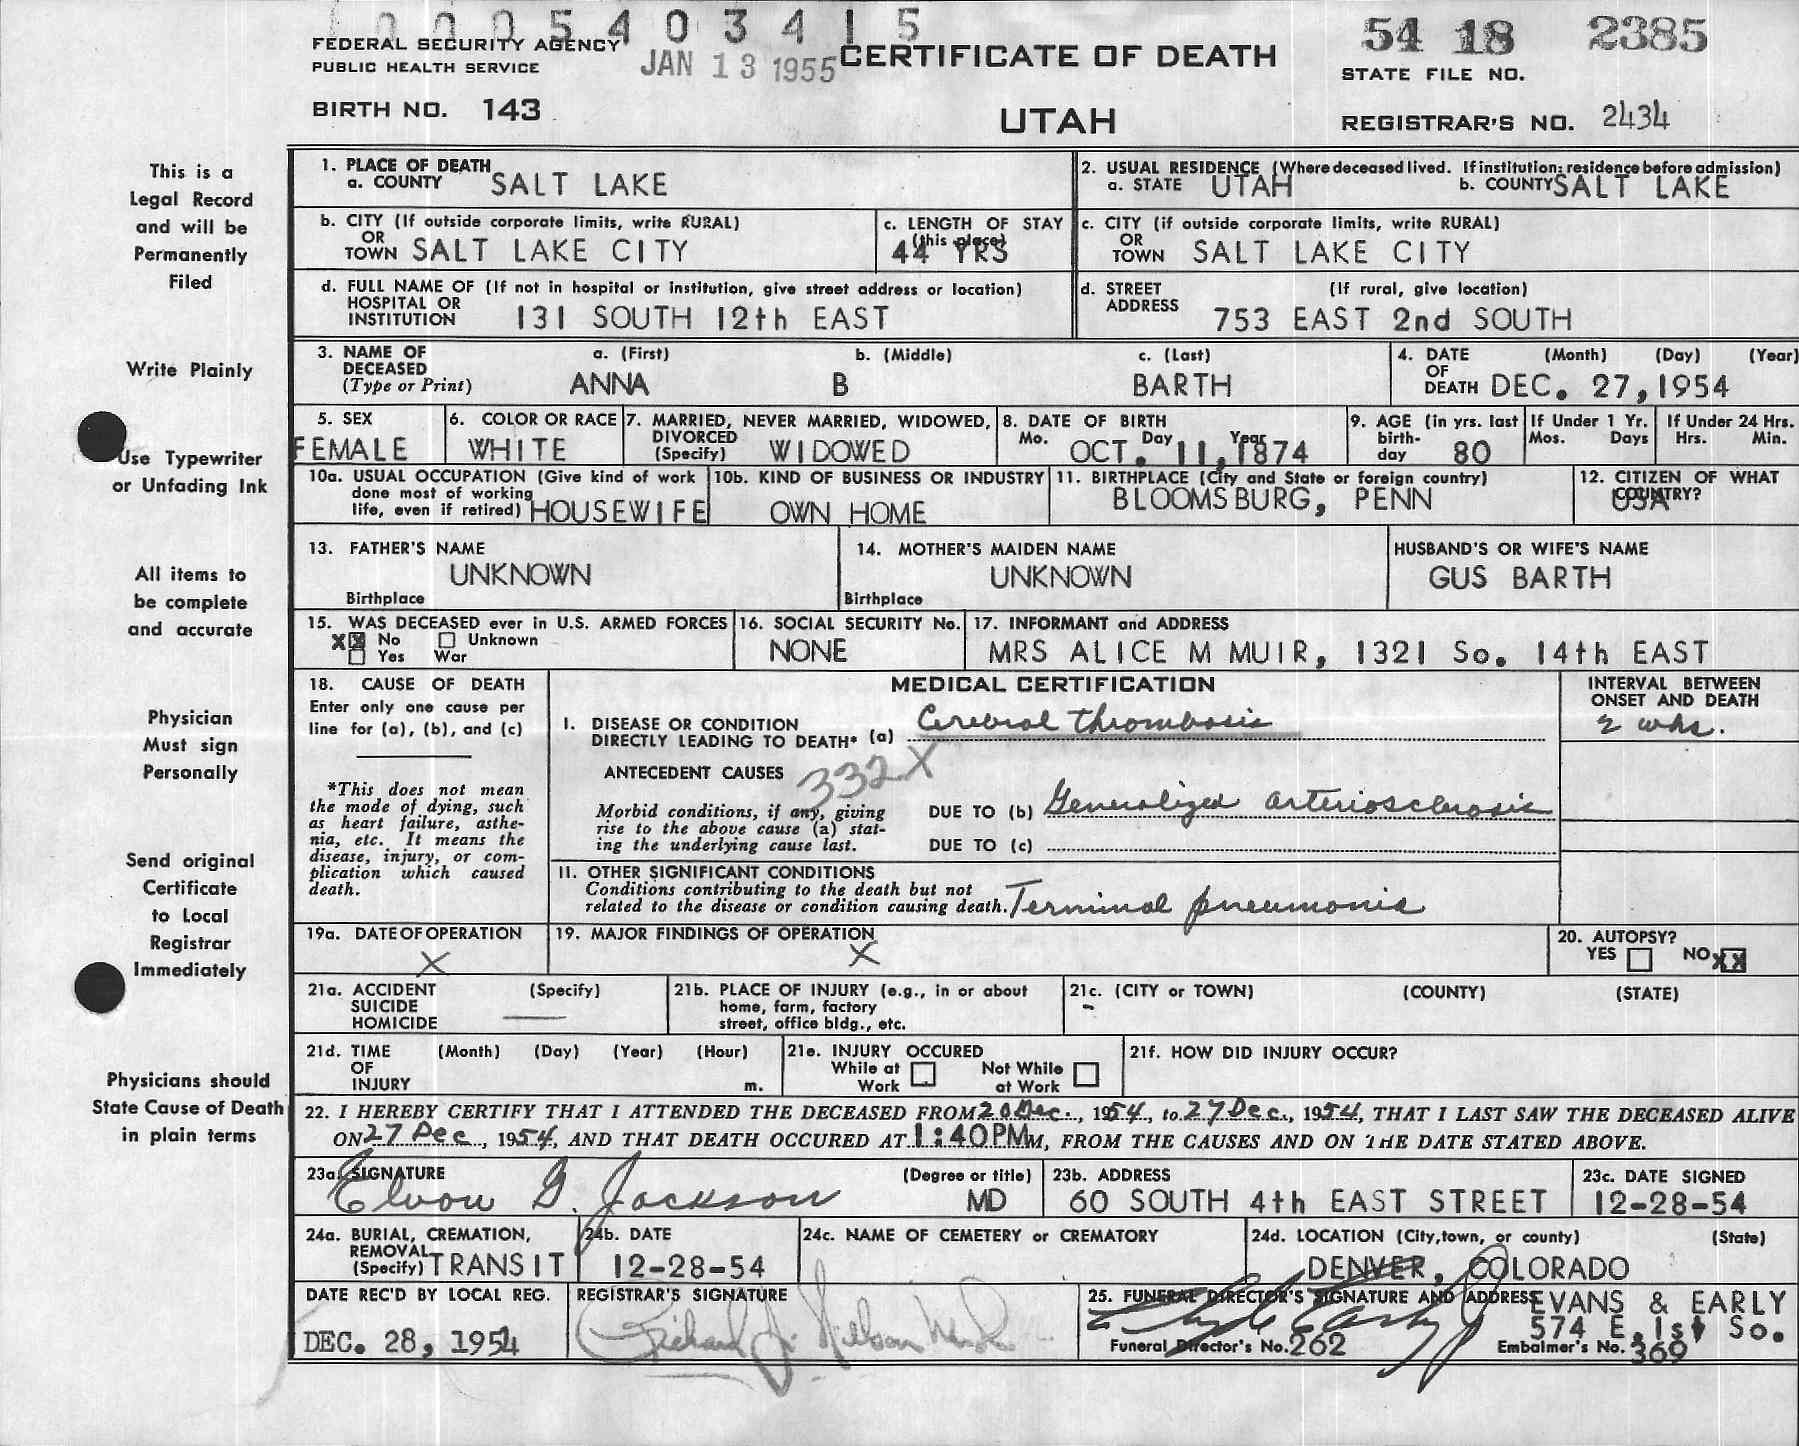 0005403415
FEDERAL SECURITY AGENCY
PUBLIC HEALTH SERVICE
JAN 13 1955
CERTIFICATE OF DEATH
54 18 2385
STATE FILE NO.
BIRTH NO. 143
UTAH
REGISTRAR'S NO. 2434
This is a
Legal Record
and will be
Permanently
Filed
Write Plainly
Use Typewriter
or Unfading Ink
All items to
be complete
and accurate
Physician
Must sign
Personally
Send original
Certificate
to Local
Registrar
Immediately
Physicians should
State Cause of Death
in plain terms
1. PLACE OF DEATH
a. COUNTY SALT LAKE
2. USUAL RESIDENCE (Where deceased lived. If institution: residence before admission)
a. STATE UTAH b. COUNTY SALT LAKE
b. CITY (If outside corporate limits, write RURAL)
OR
TOWN SALT LAKE CITY
c. LENGTH OF STAY
(this place)
44 YRS
c. CITY (if outside corporate limits, write RURAL)
OR
TOWN SALT LAKE CITY
d. FULL NAME OF (If not in hospital or institution, give street address or location)
HOSPITAL OR
INSTITUTION 131 SOUTH 12th EAST
d. STREET (If rural, give location)
ADDRESS
753 EAST 2nd SOUTH
3. NAME OF a. (First) b. (Middle) c. (Last)
DECEASED
(Type or Print) ANNA B BARTH
4. DATE (Month) (Day) (Year)
OF
DEATH DEC. 27, 1954
5. SEX
FEMALE
6. COLOR OR RACE
WHITE
7. MARRIED, NEVER MARRIED, WIDOWED,
DIVORCED
(Specify) WIDOWED
8. DATE OF BIRTH
Mo. Day Year
OCT. 11, 1874
9. AGE (in yrs. last
birth-
day 80
If Under 1 Yr.
Mos. Days
If Under 24 Hrs.
Hrs. Min.
10a. USUAL OCCUPATION (Give kind of work
done most of working
life, even if retired) HOUSEWIFE
10b. KIND OF BUSINESS OR INDUSTRY
OWN HOME
11. BIRTHPLACE (City and State or foreign country)
BLOOMSBURG, PENN
12. CITIZEN OF WHAT
COUNTRY?
USA
13. FATHER'S NAME
UNKNOWN
Birthplace
14. MOTHER'S MAIDEN NAME
UNKNOWN
Birthplace
HUSBAND'S OR WIFE'S NAME
GUS BARTH
15. WAS DECEASED ever in U.S. ARMED FORCES
XX No Unknown
Yes War
16. SOCIAL SECURITY No.
NONE
17. INFORMANT and ADDRESS
MRS ALICE M MUIR, 1321 So. 14th EAST
18. CAUSE OF DEATH
Enter only one cause per
line for (a), (b), and (c)
*This does not mean
the mode of dying, such
as heart failure, asthe-
nia, etc. It means the
disease, injury, or com-
plication which caused
death.
MEDICAL CERTIFICATION
I. DISEASE OR CONDITION
DIRECTLY LEADING TO DEATH* (a) Cerebral thrombosis
ANTECEDENT CAUSES 332X
Morbid conditions, if any, giving
rise to the above cause (a) stat-
ing the underlying cause last.
DUE TO (b) Generalized arteriosclerosis
DUE TO (c)
INTERVAL BETWEEN
ONSET AND DEATH
2 wks.
11. OTHER SIGNIFICANT CONDITIONS
Conditions contributing to the death but not
related to the disease or condition causing death. Terminal pneumonia
19a. DATE OF OPERATION
X
19. MAJOR FINDINGS OF OPERATION
X
20. AUTOPSY?
YES NO XX
21a. ACCIDENT (Specify)
SUICIDE
HOMICIDE
21b. PLACE OF INJURY (e.g., in or about
home, farm, factory
street, office bldg., etc.
21c. (CITY or TOWN) (COUNTY) (STATE)
-
21d. TIME (Month) (Day) (Year) (Hour)
OF
INJURY m.
21e. INJURY OCCURED
While at Not While
Work at Work
21f. HOW DID INJURY OCCUR?
22. I HEREBY CERTIFY THAT I ATTENDED THE DECEASED FROM 20 Dec., 1954, to 27 Dec., 1954, THAT I LAST SAW THE DECEASED ALIVE
ON 27 Dec, 1954, AND THAT DEATH OCCURED AT 1:40PM m, FROM THE CAUSES AND ON THE DATE STATED ABOVE.
23a. SIGNATURE (Degree or title)
Elvon G. Jackson MD
23b. ADDRESS
60 SOUTH 4th EAST STREET
23c. DATE SIGNED
12-28-54
24a. BURIAL, CREMATION,
REMOVAL
(Specify) TRANSIT
24b. DATE
12-28-54
24c. NAME OF CEMETERY or CREMATORY
24d. LOCATION (City, town, or county) (State)
DENVER, COLORADO
DATE REC'D BY LOCAL REG.
DEC. 28, 1954
REGISTRAR'S SIGNATURE
Richard J. Nelson
25. FUNERAL DIRECTOR'S SIGNATURE AND ADDRESS EVANS & EARLY
574 E. 1st So.
Funeral Director's No. 262 Embalmer's No. 369